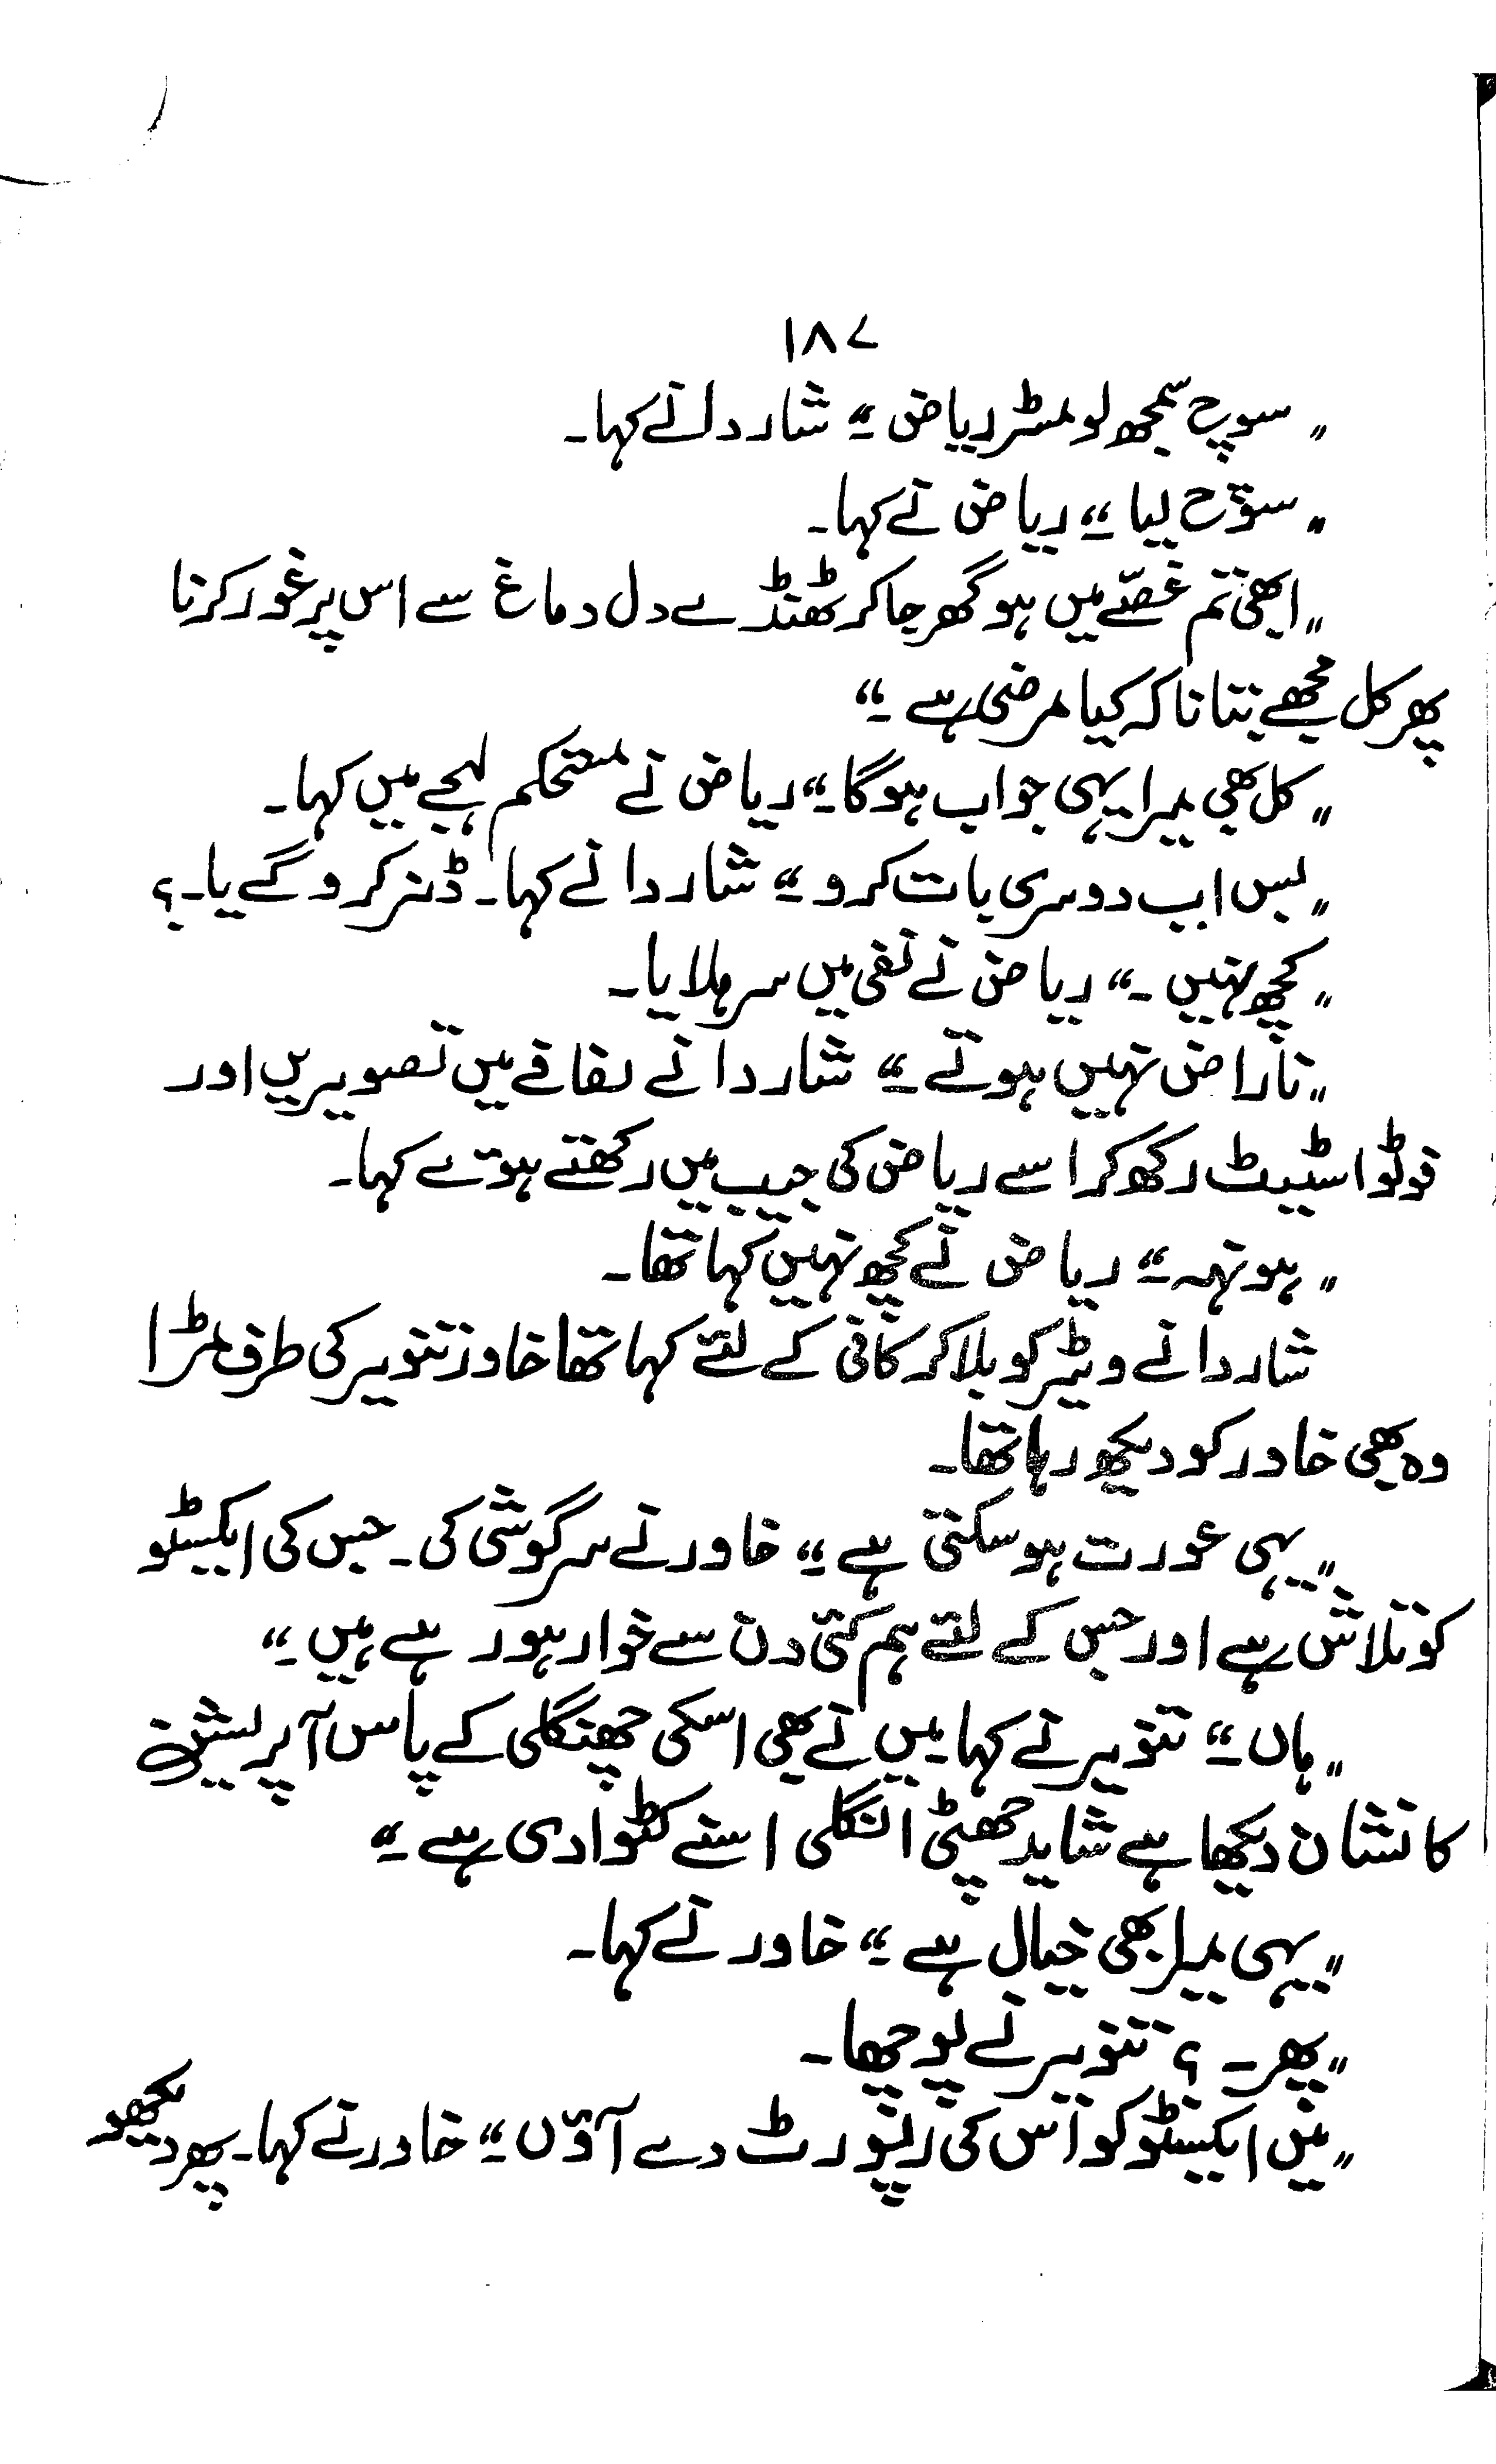 ۱۸۷
"سوچ سمجھ لو مسٹر ریاض۔" شاردا نے کہا۔
"سوچ لیا۔" ریاض نے کہا۔
"ابھی تم غصّے میں ہو گھر جا کر ٹھنڈے دل دماغ سے اس پر غور کرنا
پھر کل مجھے بتانا کہ کیا مرضی ہے۔"
"کل بھی میرا یہی جواب ہوگا۔" ریاض نے مستحکم لہجے میں کہا۔
"بس اب دوسری بات کرو۔" شاردا نے کہا۔ ڈنر کرو گے یا۔؟
"کچھ نہیں۔" ریاض نے نفی میں سر ہلایا۔
"ناراض نہیں ہوتے۔" شاردا نے لفافے میں تصویریں اور
فوٹو اسٹیٹ رکھ کر اسے ریاض کی جیب میں رکھتے ہوئے کہا۔
"ہونہہ۔" ریاض نے کچھ نہیں کہا تھا۔
شاردا نے ویٹر کو بلا کر کافی کے لئے کہا تھا خاور تنویر کی طرف مڑا
وہ بھی خاور کو دیکھ رہا تھا۔
"یہی عورت ہو سکتی ہے۔" خاور نے سرگوشی کی۔ جس کی ایکسٹو
کو تلاش ہے اور جس کے لئے ہم کئی دن سے خوار ہو رہے ہیں۔"
"ہاں۔" تنویر نے کہا۔ میں نے بھی اسکی چھنگلی کے پاس آپریشن
کا نشان دیکھا ہے شاید چھٹی انگلی اسنے کٹوا دی ہے۔"
"یہی میرا بھی خیال ہے۔" خاور نے کہا۔
"پھر۔؟ تنویر نے پوچھا۔
"میں ایکسٹو کو اس کی رپورٹ دے آؤں۔" خاور نے کہا۔ پھر دیکھو